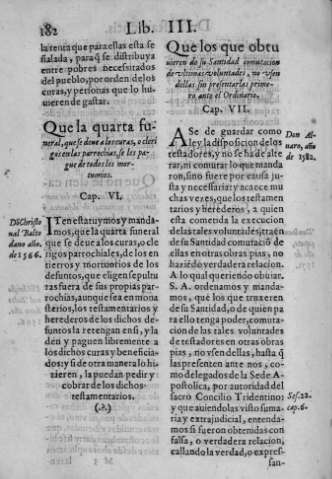 182 Lib. III.
la renta que para ellas esta se
ñalada, paraq̃ se distribuya
entre pobres necessitados
del pueblo, por orden de los
curas, y personas que lo hu-
uieren de gastar.
Que la quarta fu-
neral, que se deue a los curas, o cleri
gos en las parrochias, se les pa-
gue de todos los mor-
tuorios.
Cap. VI.
Dō Christo
ual Balto
dano año.
de 1566.
ITen estatuymos y manda-
mos, que la quarta funeral
que se deue a los curas, o cle
rigos parrochiales, de los en
tierros y mortuorios de los
defuntos, que eligen sepultu
ras fuera de sus propias par-
rochias, aunque sea en mona
sterios, los testamentarios y
herederos de los dichos de-
funtos la retengan en si, y la
den y paguen libremente a
los dichos curas y beneficia-
dos: y si de otra manera lo hi-
zieren, la puedan pedir y
cobrar de los dichos
testamentarios.
(.?.)
Que los que obtu
uieren de su Santidad comutacion
de vltimas voluntades, no vsen
dellas sin presentarlas prime-
ro ante el Ordinario.
Cap. VII.
Don Al-
uaro, año
de 1582.
ASe de guardar como
ley, la disposicion de los
testadores, y no se ha de alte
rar, ni comutar lo que manda
ron, sino fuere por causa jus
ta y necessaria: y acaece mu
chas vezes, que los testamen
tarios y herederos, a quien
esta comenda la execucion
de las tales volūtades, traen
de su Santidad comutació de
ellas en otras obras pias, no
haziēdo verdadera relacion.
A lo qual queriendo obuiar.
S. A. ordenamos y manda-
mos, que los que truxeren
de su Santidad, o de quien pa
ra ello tenga poder, comuta-
cion de las tales voluntades
de testadores en otras obras
pias, no vsen dellas, hasta q̃
las presenten ante nos, co-
mo delegados de la Sede A-
postolica, por autoridad del
sacro Concilio Tridentino:
Ses. 22.
cap. 6.
y que auiendolas visto suma-
ria y extrajudicial, entenda-
mos si fueron obtenidas con
falsa, o verdadera relacion,
callando la verdad, o expres-
san-